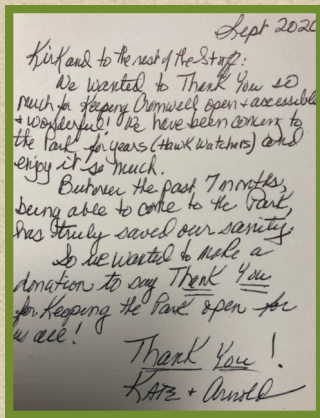 Sept 2020
Kirk and to the rest of the Staff:
We wanted to Thank You so
much for Keeping Cromwell open + accessible
+ wonderful! We have been coming to
the Park for years (Hawk Watchers) and
enjoy it so much.
But over the past 7 months,
being able to come to the Park,
has truly saved our sanity.
So we wanted to make a
donation to say Thank You
for Keeping the Park open for
us all!
Thank You!
Kate + Arnold